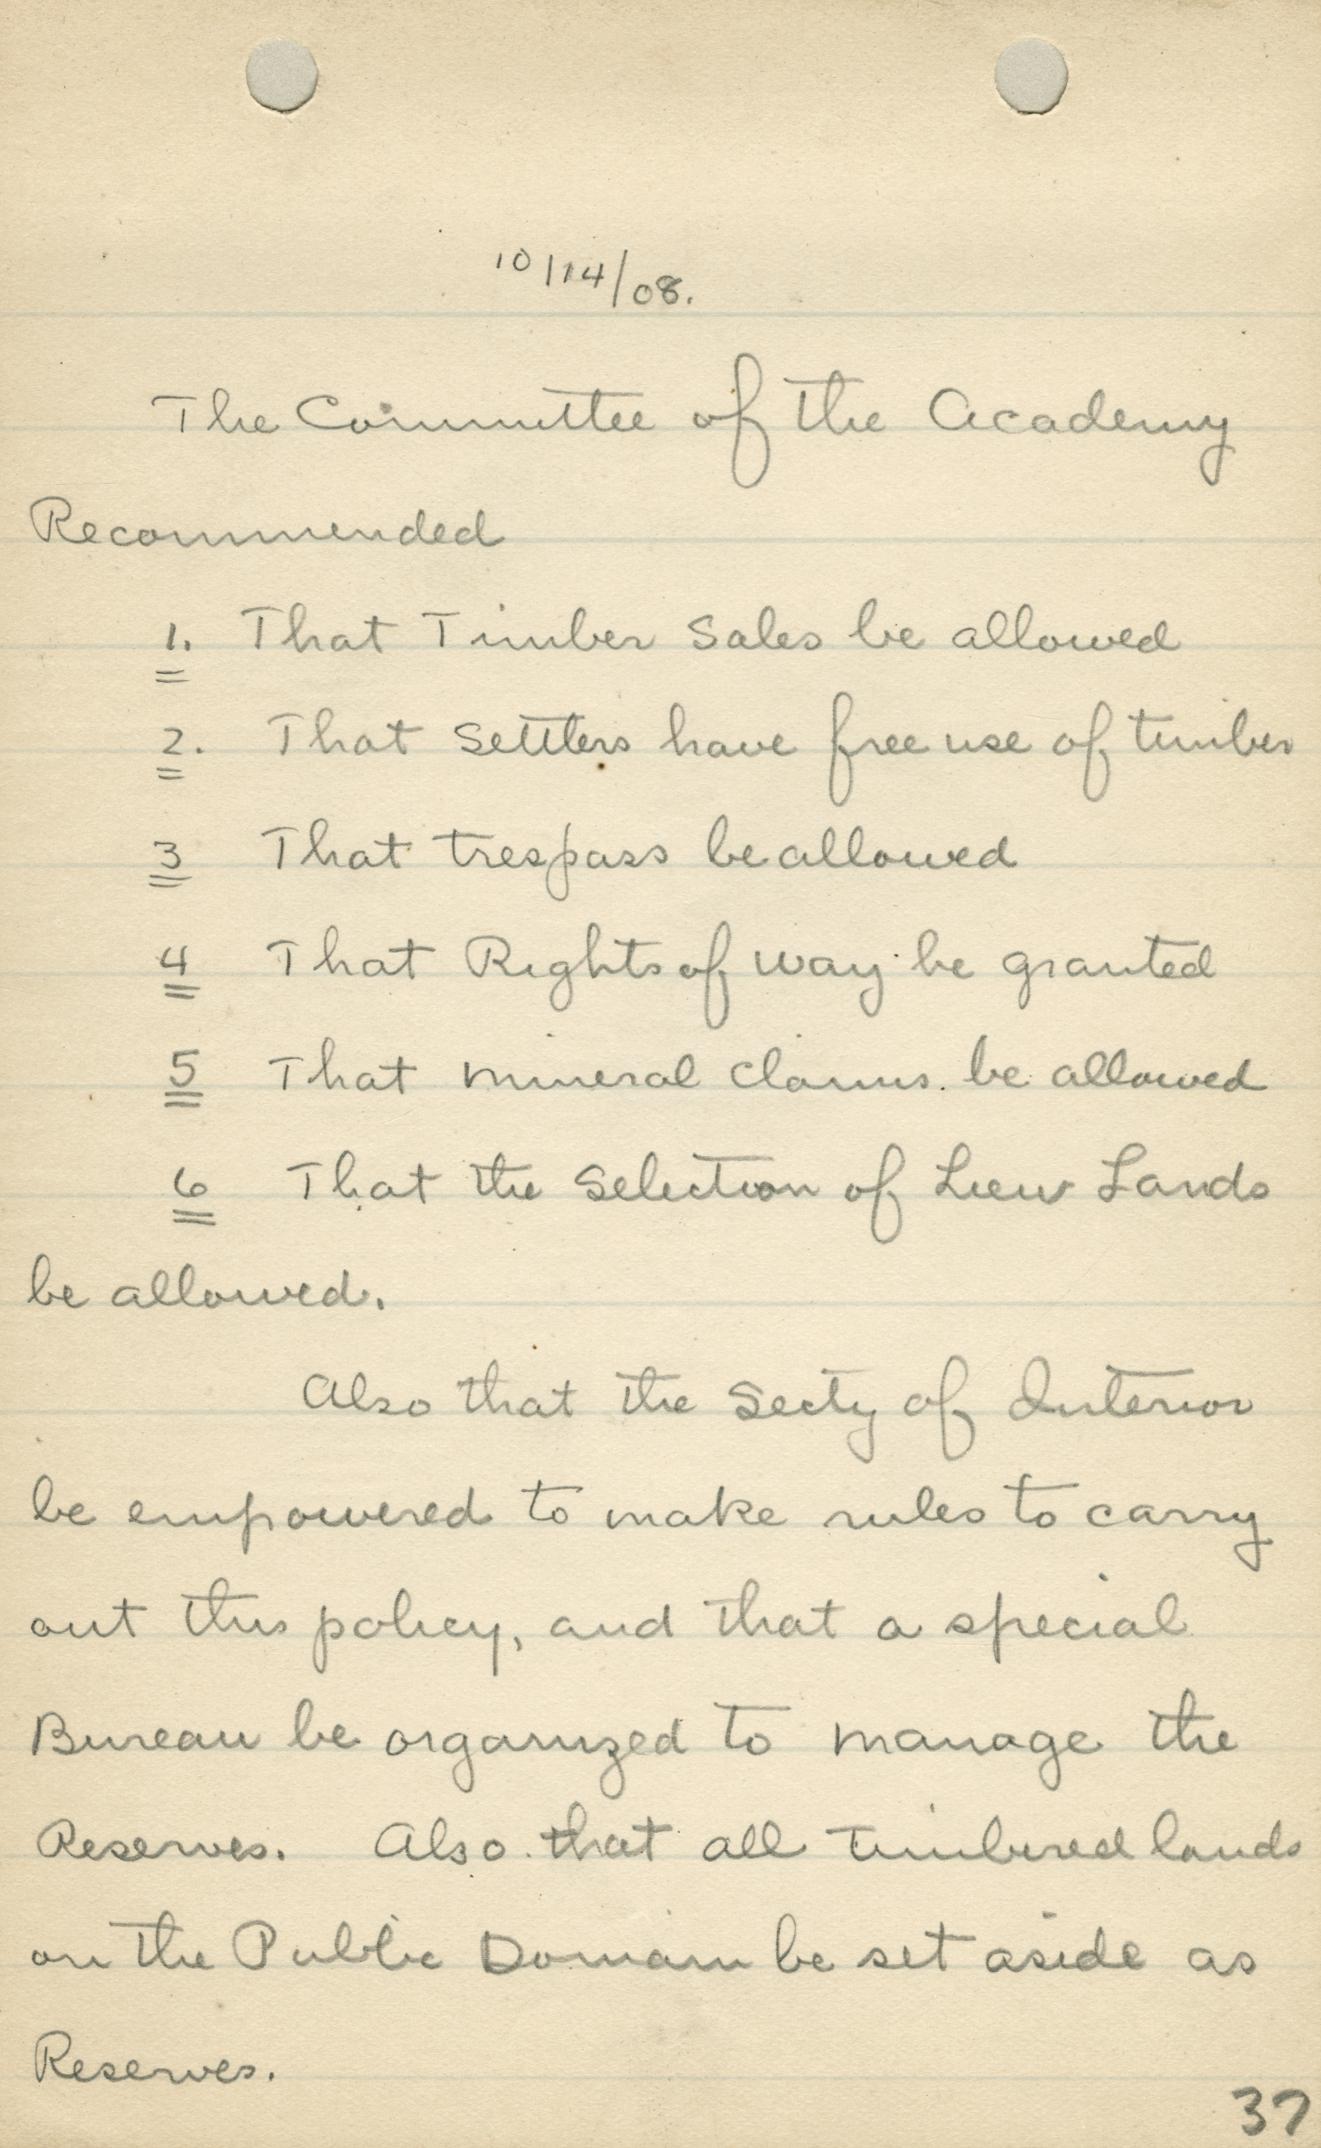 10/14/08.
The Committee of the Academy
Recommended
1. That Timber Sales be allowed
2. That Settlers have free use of timber
3 That trespass be allowed
4 That Rights of way be granted
5 That mineral claims be allowed
6 That the Selection of Lieu Lands
be allowed.
Also that the Secty of Interior
be empowered to make rules to carry
out this policy, and that a special
Bureau be organized to manage the
Reserves. Also that all timbered lands
on the Public Domain be set aside as
Reserves.
37